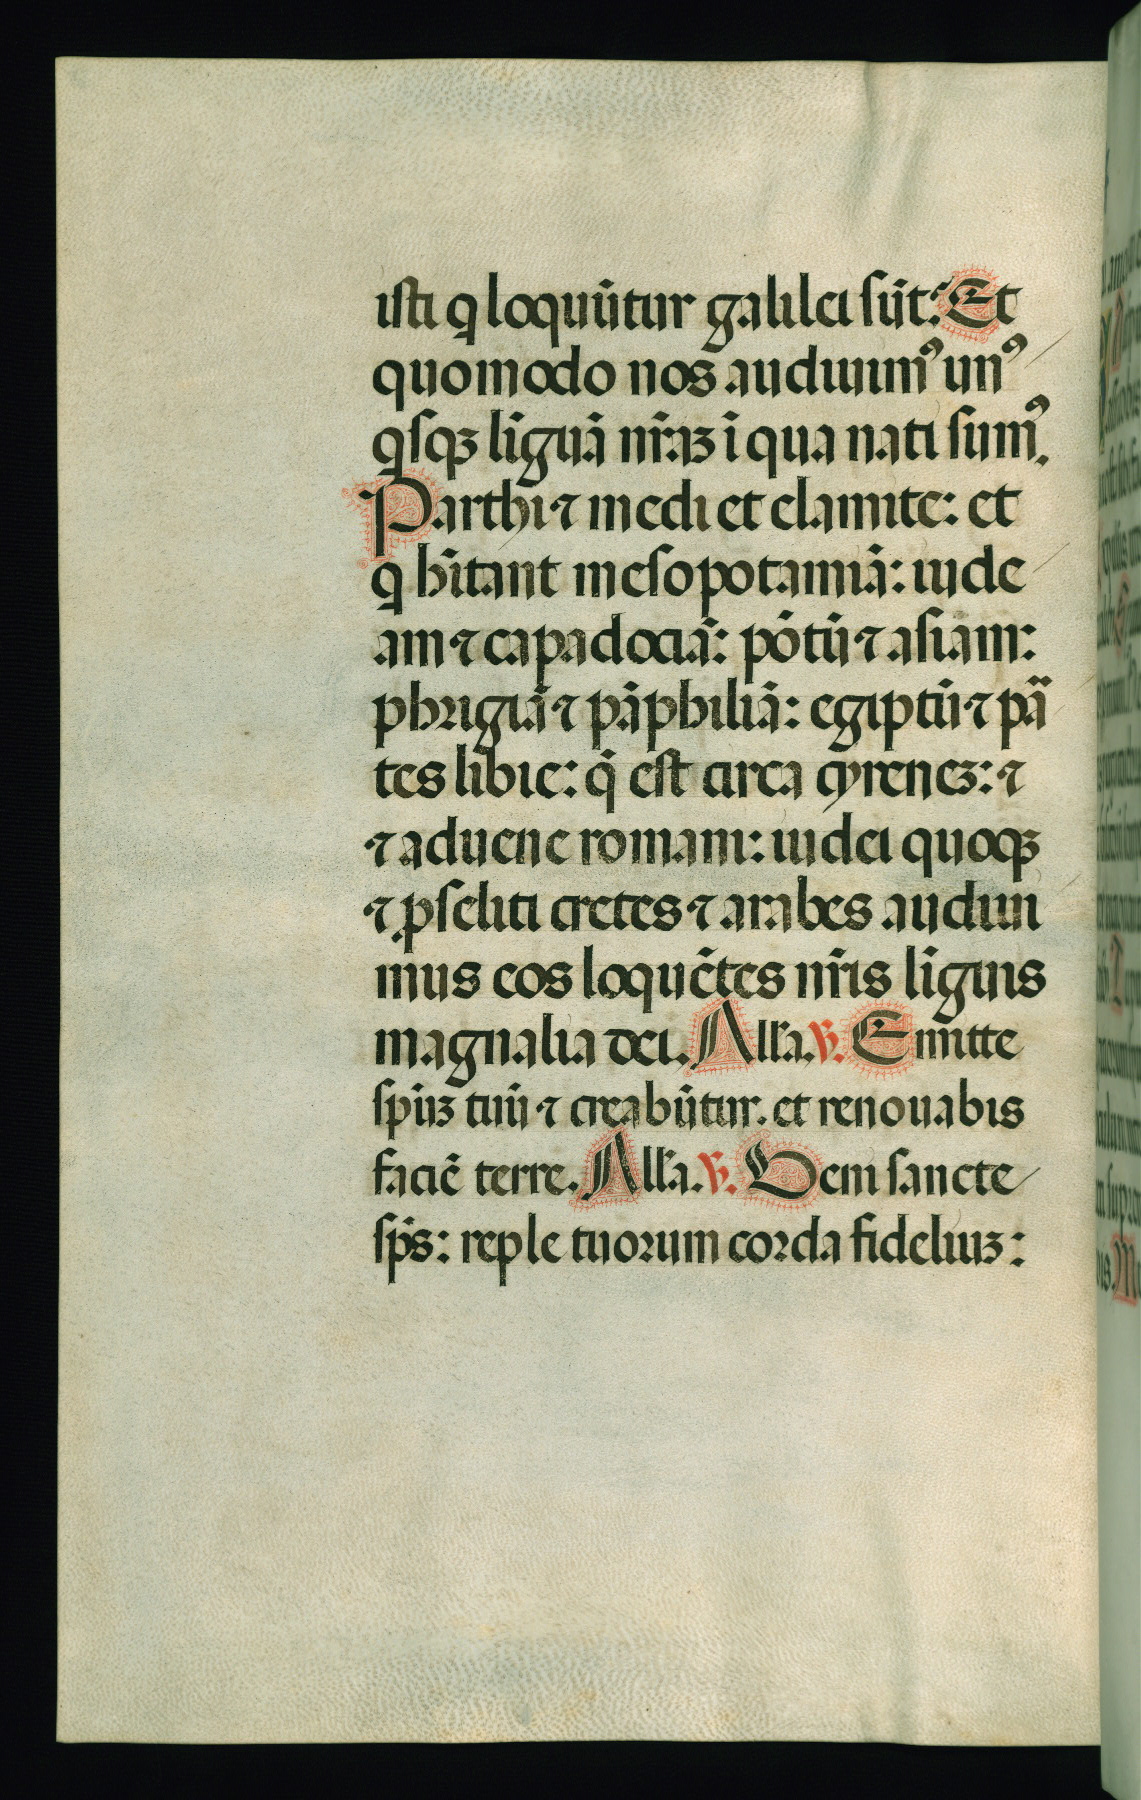 isti q loquūtur galilei sūt: Et
quomodo nos audiuimꝰ unꝰ
qsqꝫ līguā nr̄aꝫ ī qua nati sumꝰ.
Parthi ⁊ medi et elamite: et
q hītant mesopotamiā: iude
am ⁊ capadociā: pōtū ⁊ asiam:
phrigiā ⁊ pāphiliā: egiptū ⁊ pā
tes libie: q̄ est circa cyreneꝫ: ⁊
⁊ aduene romani: iudei quoqꝫ
⁊ ꝓseliti cretes ⁊ arabes audiui
mus eos loquētes nr̄is līguis
magnalia dei. All'a. ℣. Emitte
spūꝫ tuū ⁊ creabūtur. et renouabis
faciē terre. All'a. ℣. Ueni sancte
sp̄s: reple tuorum corda fideliuꝫ: